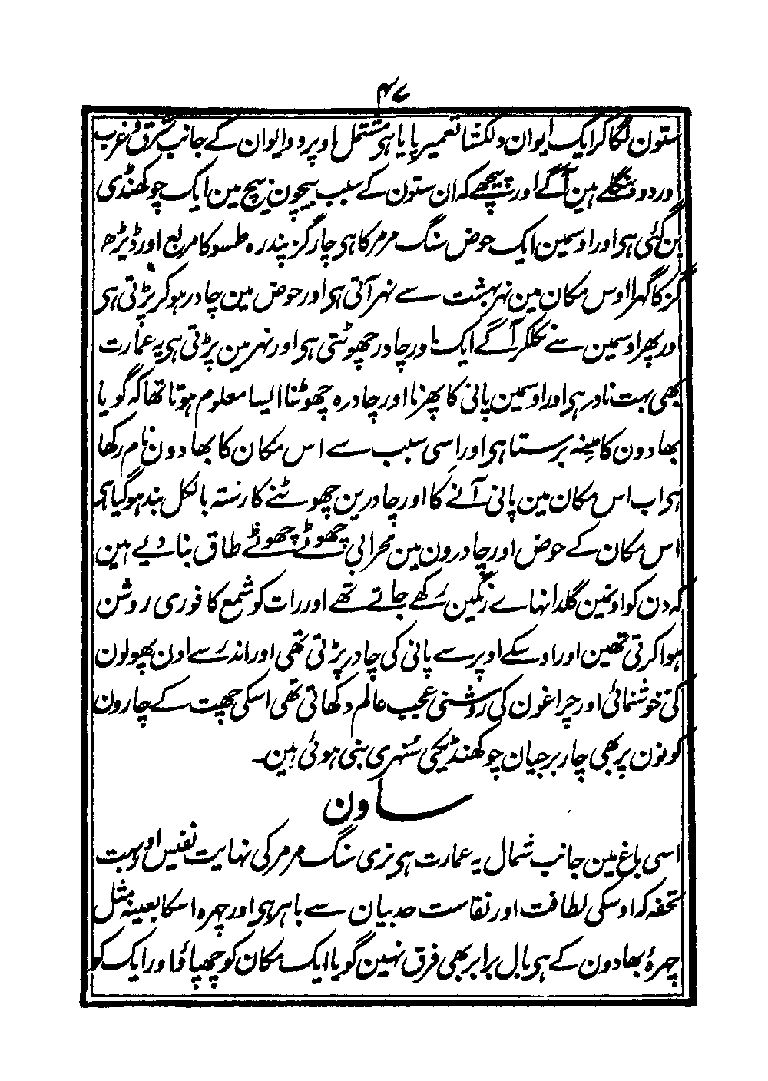 ۴۷
ستون لگا کر ایک ایوان دلکشا تعمیر پایا ہی مشتمل اوپر دو ایوان کے جانب شرق و غرب
اور دو بنگلے ہین آگے اور پیچھے کہ ان ستون کے سبب بیچون بیچ مین ایک چوکھنڈی
بن گئی ہی اور اوسمین ایک حوض سنگ مرمر کا ہی چار گز پندرہ طسو کا مربع اور ڈیڑھ
گز کا گہرا اوس مکان مین نہر بہشت سے نہر آتی ہی اور حوض مین چادر ہو کر پڑتی ہی
اور پھر اوسمین سے نکلکر آگے ایک اور چادر چھوٹتی ہی اور نہر مین پڑتی ہی یہ عمارت
بھی بہت نادر ہی اور اوسمین پانی کا پھرنا اور چادرہ چھوٹنا ایسا معلوم ہوتا تھا کہ گویا
بھادون کا مینہ برستا ہی اور اسی سبب سے اس مکان کا بھادون نام رکھا
ہی اب اس مکان مین پانی آنے کا اور چادرین چھوٹنے کا رستہ بالکل بند ہو گیا ہی
اس مکان کے حوض اور چادرون مین محرابی چھوٹے چھوٹے طاق بنا دیے ہین
کہ دن کو اونین گلدانہاے رنگین رکھے جاتے تھے اور رات کو شمع کافوری روشن
ہوا کرتی تھین اور اوسکے اوپر سے پانی کی چادر پڑتی تھی اور اندر سے اون پھولون
کی خوشنمائی اور چراغون کی روشنی عجب عالم دکھاتی تھی اسکی چھت کے چارون
کونون پر بھی چار برجیان چوکھنڈیکی سنہری بنی ہوئی ہین۔
ساون
اسی باغ مین جانب شمال یہ عمارت ہی نری سنگ مرمر کی نہایت نفیس اور بہت
تحفہ کہ اوسکی لطافت اور نفاست حد بیان سے باہر ہی اور چہرہ اسکا بعینہ مثل
چہرۂ بھادون کے ہی بال برابر بھی فرق نہین گویا ایک مکان کو چھپاؤ اور ایک کو